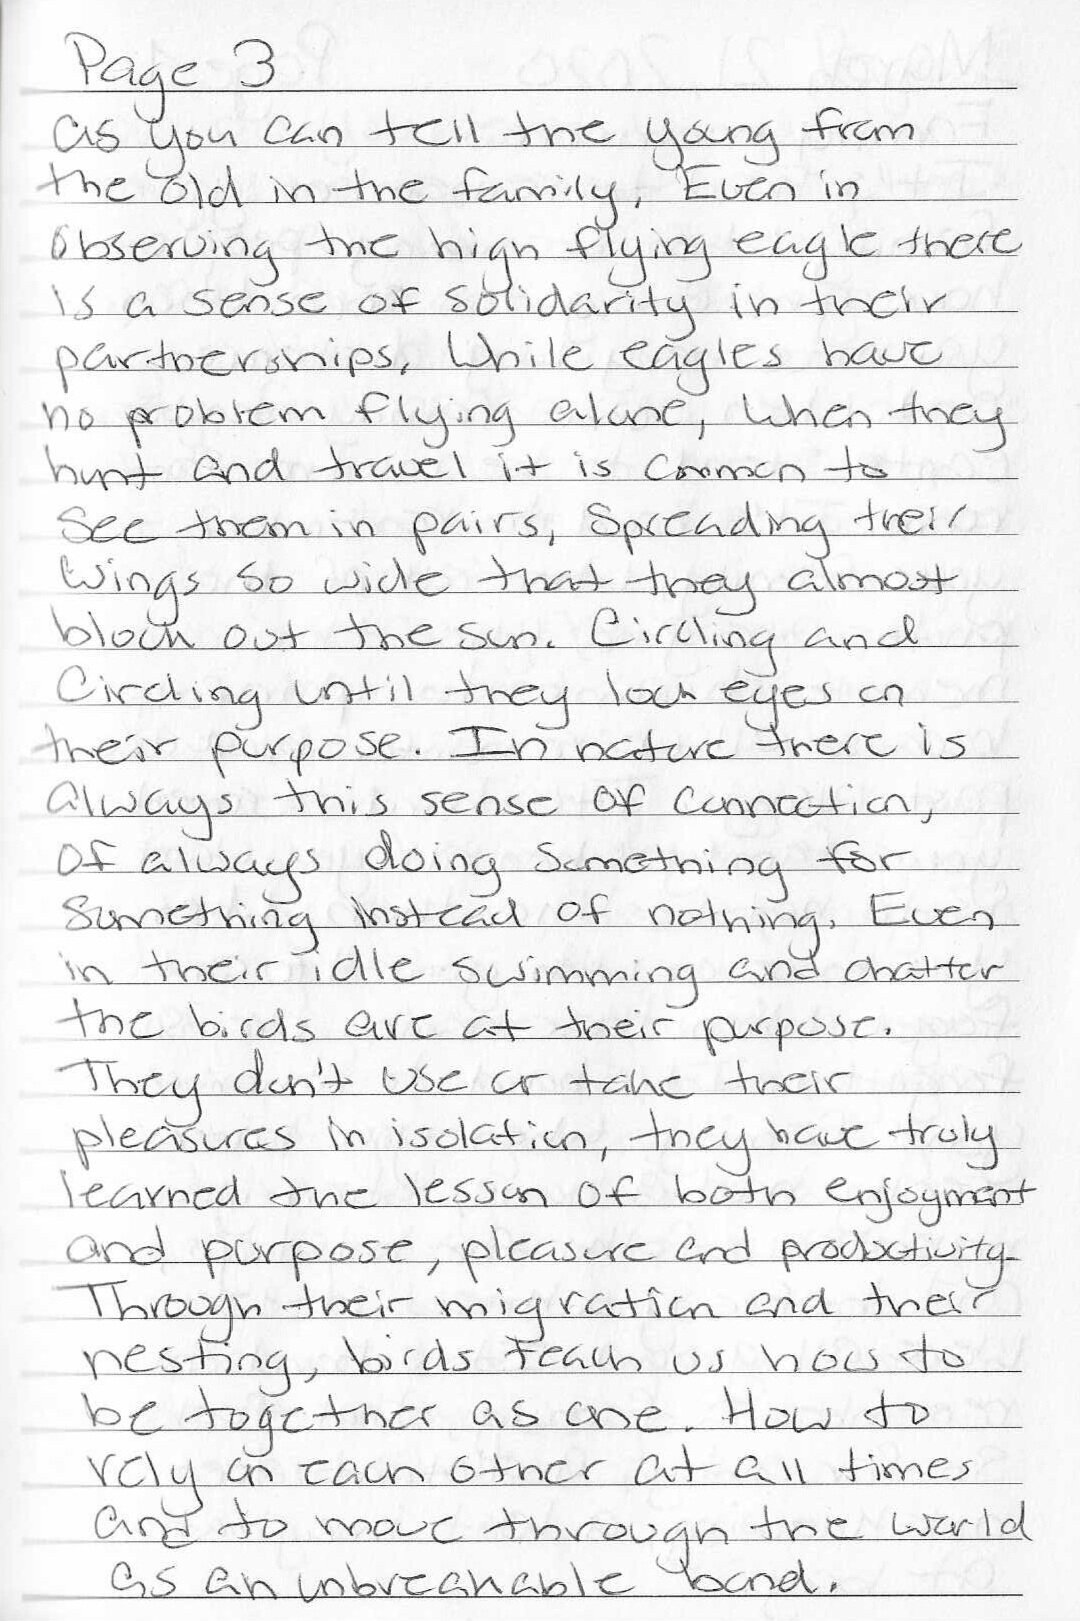 Page 3
as you can tell the young from
the old in the family, Even in
observing the high flying eagle there
is a sense of solidarity in their
partnerships, While eagles have
no problem flying alone, when they
hunt and travel it is common to
see them in pairs, Spreading their
wings so wide that they almost
block out the sun. Circling and
Circling until they lock eyes on
their purpose. In nature there is
always this sense of connection,
of always doing something for
something instead of nothing. Even
in their idle swimming and chatter
the birds are at their purpose.
They don't use or take their
pleasures in isolation, they have truly
learned the lesson of both enjoyment
and purpose, pleasure and productivity
Through their migration and their
nesting, birds teach us how to
be together as one. How to
rely on each other at all times
and to move through the world
as an unbreakable bond.